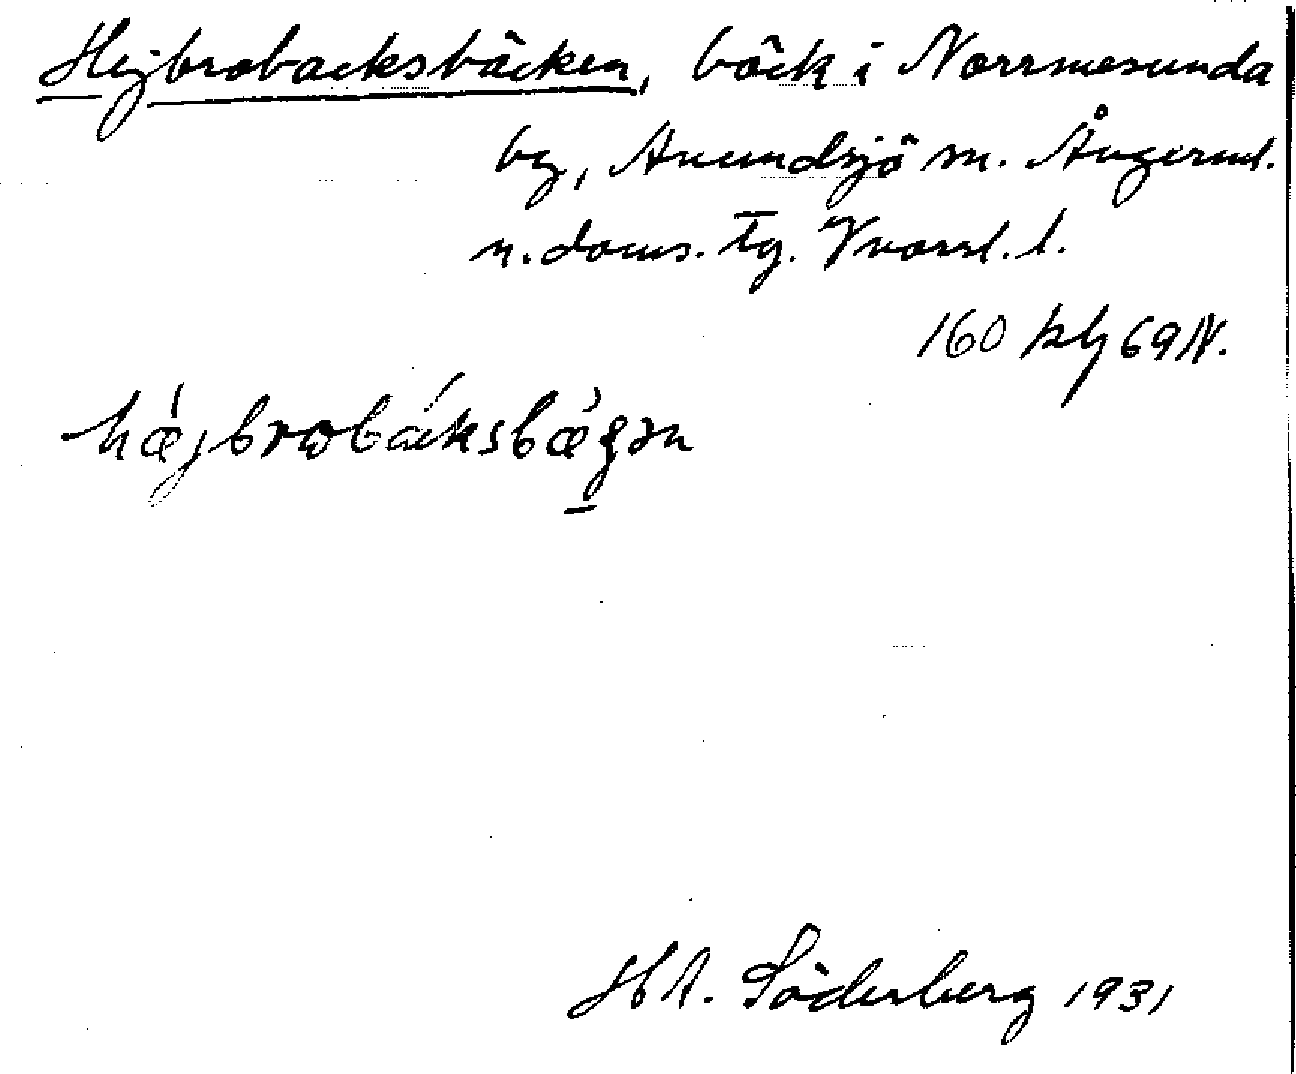 Hejbrobacksbäcken, bäck i Norrmesunda
by, Anundsjö sn. Ångerml.
n. doms. tg. Västernorrl. l.
160 kbg 69 N.
hæjbrωbáksbæ̀gən
H A. Söderberg 1931